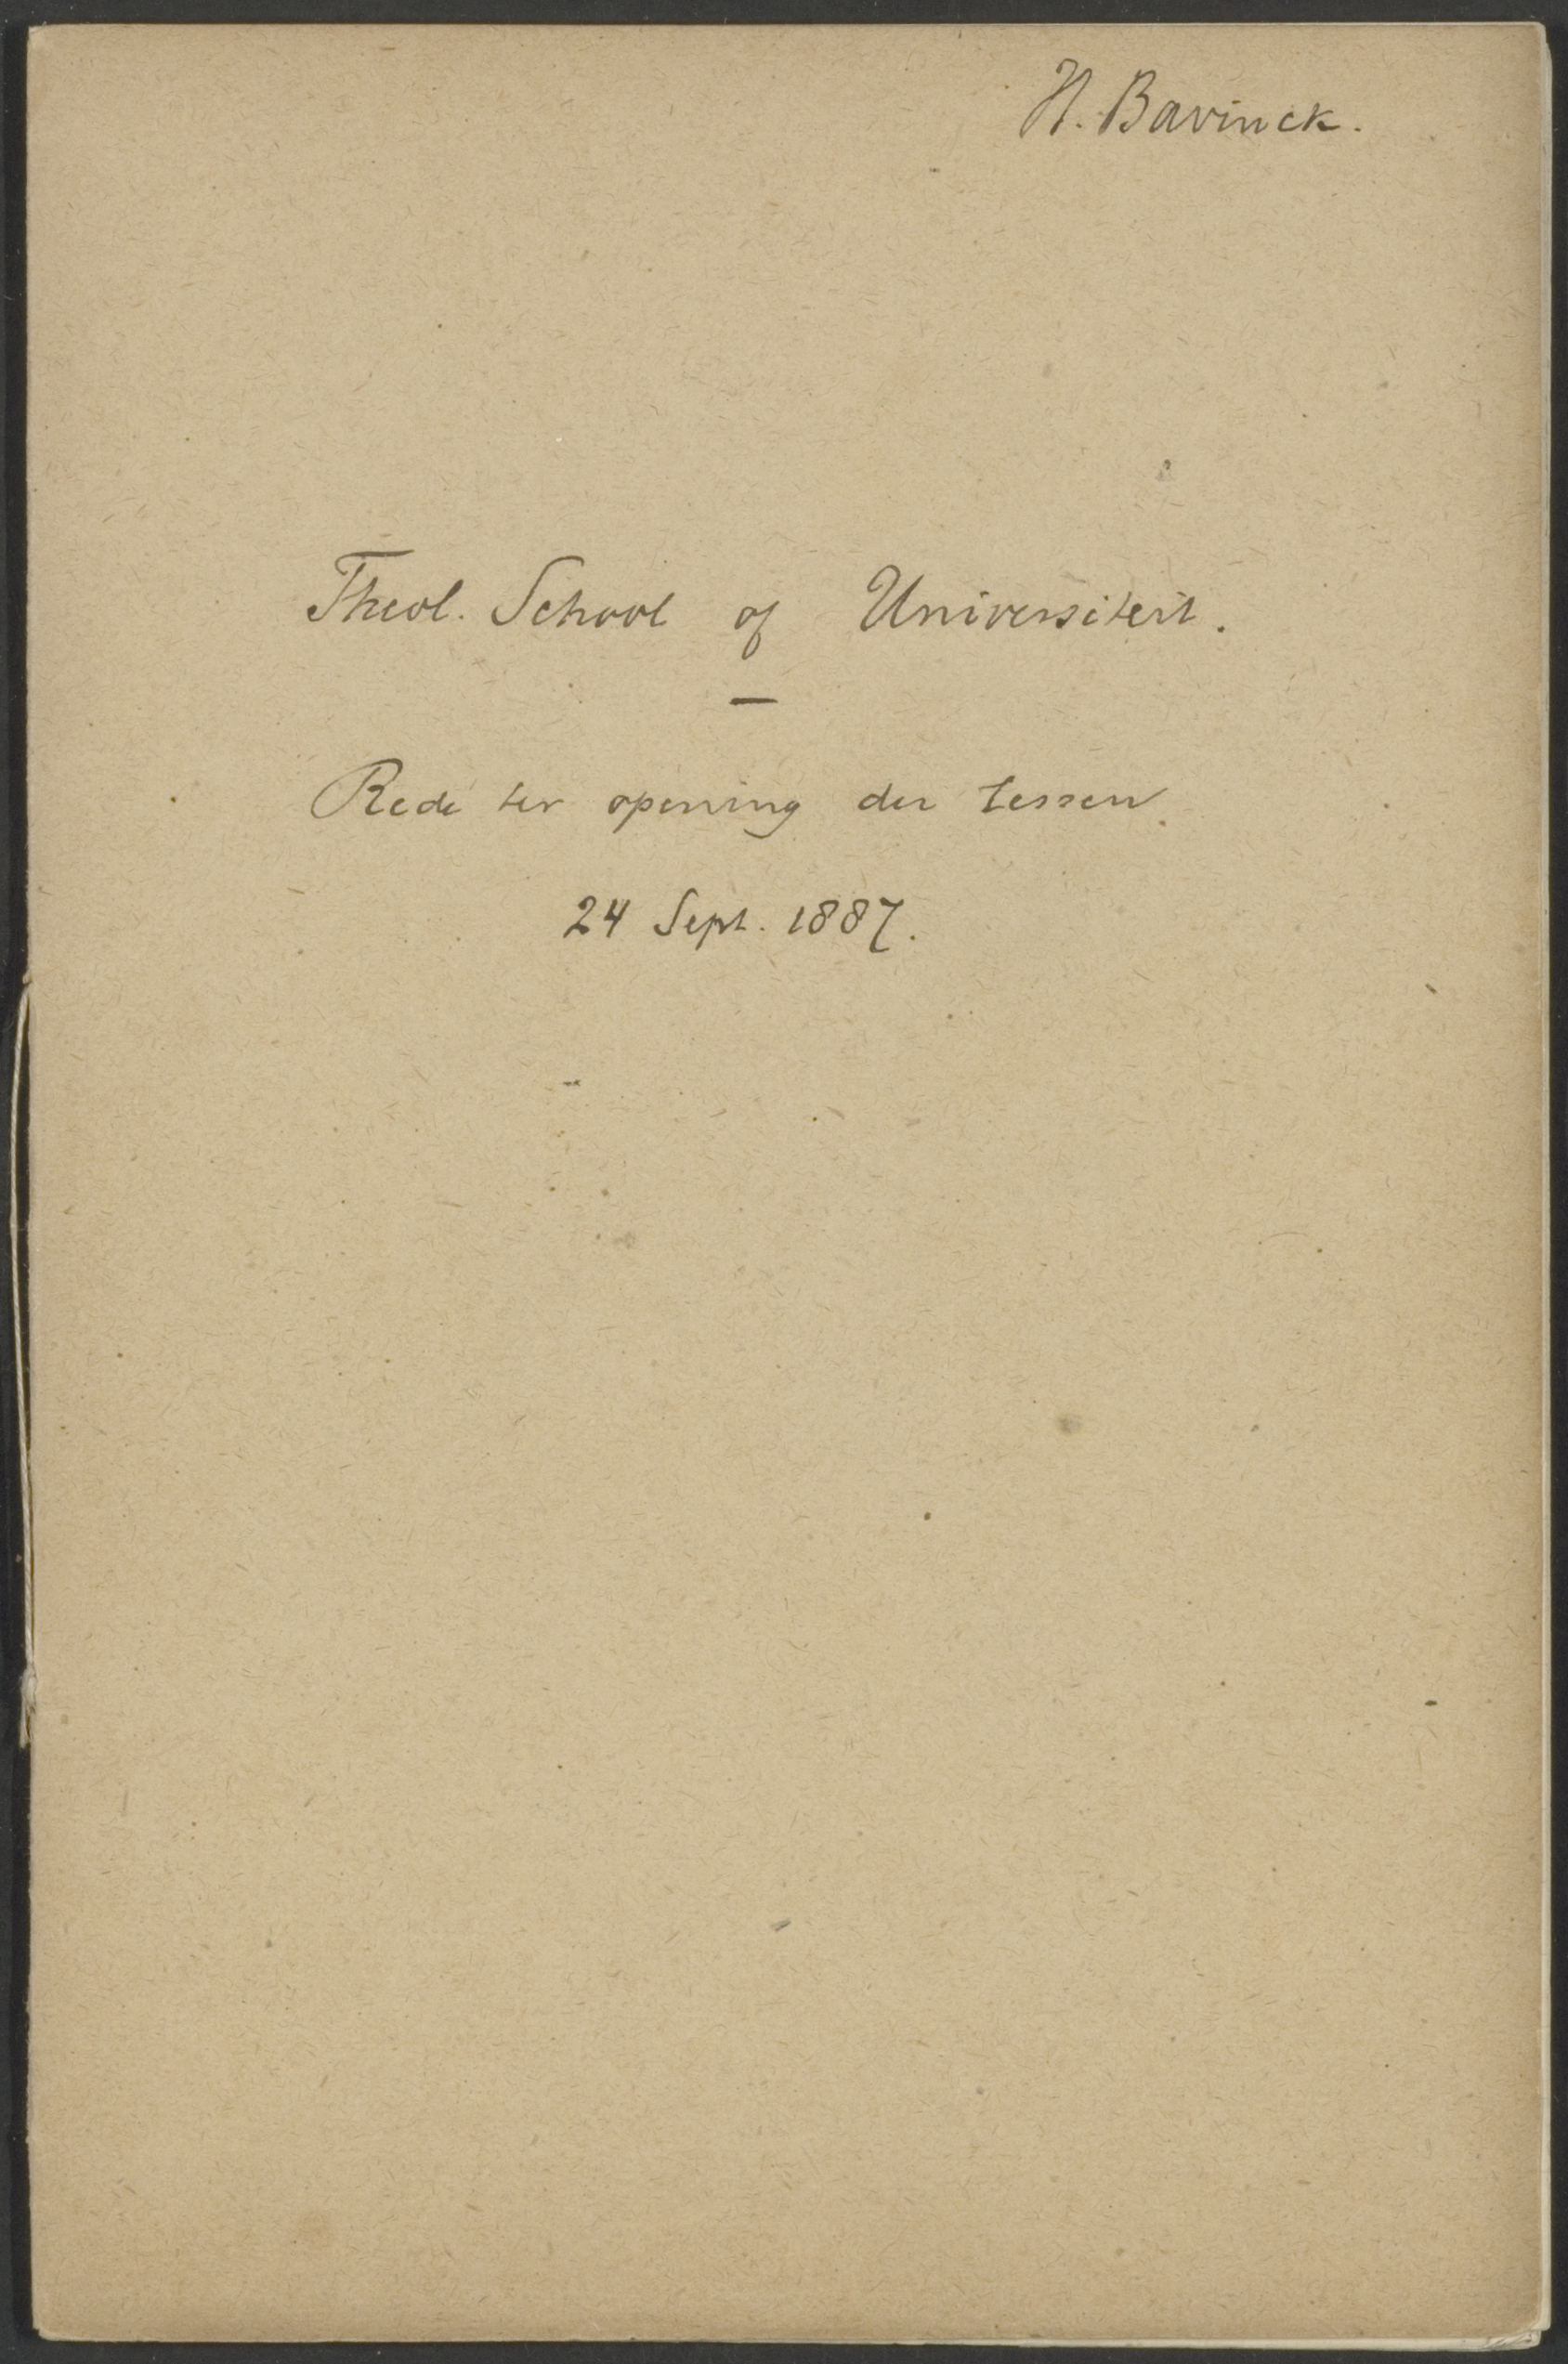 H. Bavinck.
Theol. School of Universiteit.
—
Rede ter opening der lessen.
24 Sept. 1887.